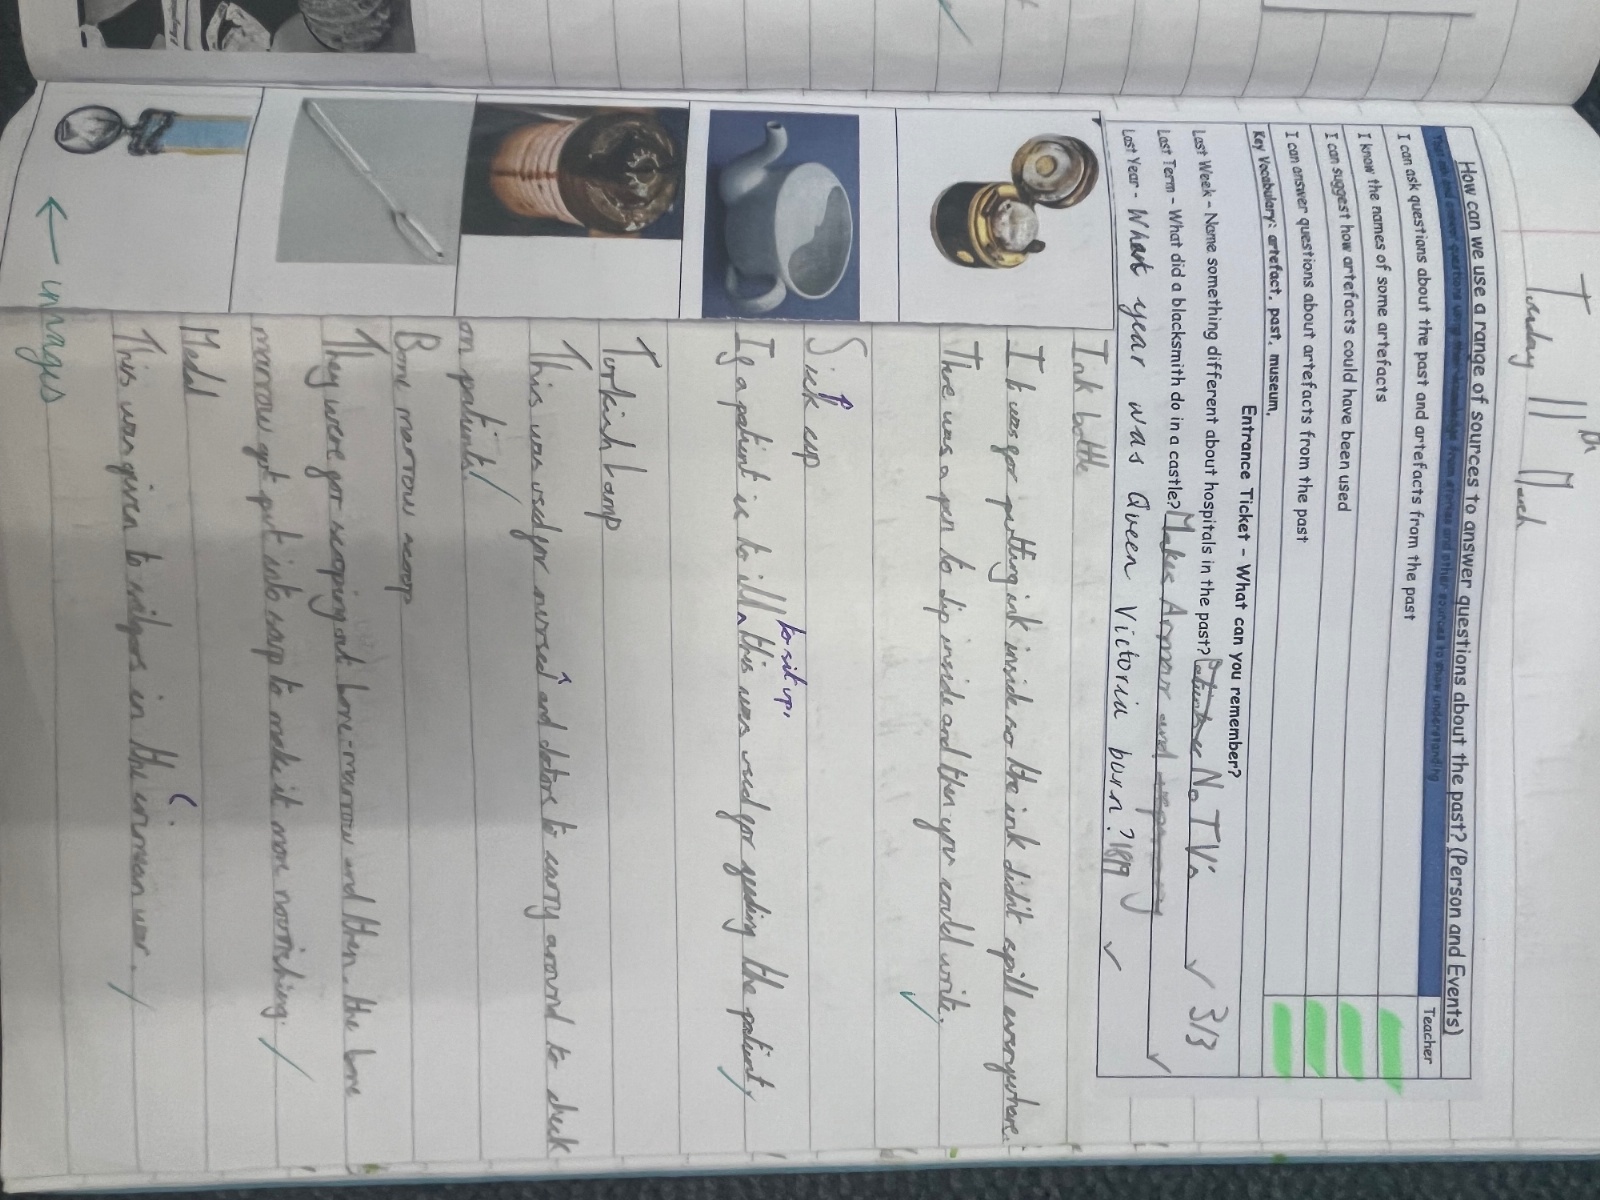 Tuesday 11th March
How can we use a range of sources to answer questions about the past? (Person and Events)
Teacher
I can ask questions about the past and artefacts from the past
I know the names of some artefacts
I can suggest how artefacts could have been used
I can answer questions about artefacts from the past
Key Vocabulary: artefact, past, museum,
Entrance Ticket – What can you remember?
Last Week – Name something different about hospitals in the past? No TV's
3/3
Last Term – What did a blacksmith do in a castle? Makes Armor and
Last Year – What year was Queen Victoria born? 1819
Ink bottle
It was for putting ink inside so the ink didn't spill everywhere.
There was a pen to dip inside and then you could write.
Sick cup
to sit up,
If a patient is to ill this was used for feeding the patient
Turkish Lamp
This was used for nurses and doctors to carry around to check
on patients
Bone marrow scoop
They were for scraping out bone-marrow and then the bone
marrow got put into soup to make it more nourishing.
Medal
This was given to soilgers in the crimean war.
← images